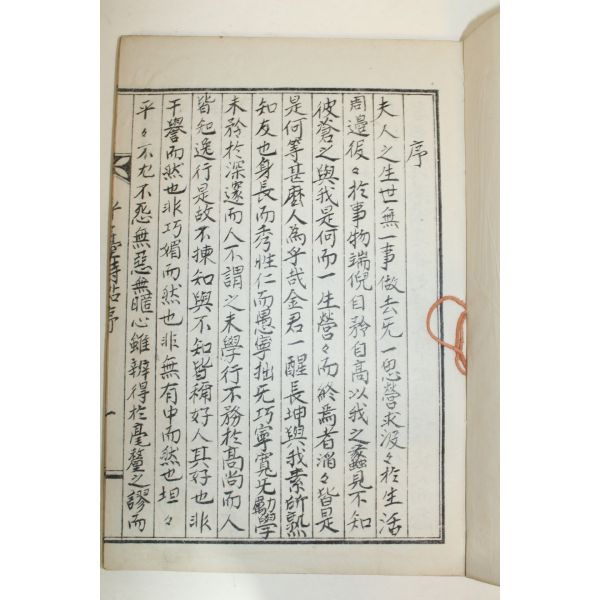 序
夫人之生世無一事做去旡一思營求汲々於生活
周邊役々於事物端倪自矜自高以我之蠡見不知
彼蒼之與我是何而一生營々而終焉者滔々皆是
是何等甚麽人為乎哉金君一醒長坤與我素所熟
知友也身長而秀性仁而愚寧拙旡巧寧寬旡勵學
未矜於深邃而人不謂之未學行不務於高尚而人
皆知逸行是故不揀知與不知皆稱好人其好也非
干譽而然也非巧媚而然也非無有中而然也坦々
平々不尤不怨無惡無慝心雖辨得於毫釐之謬而
序